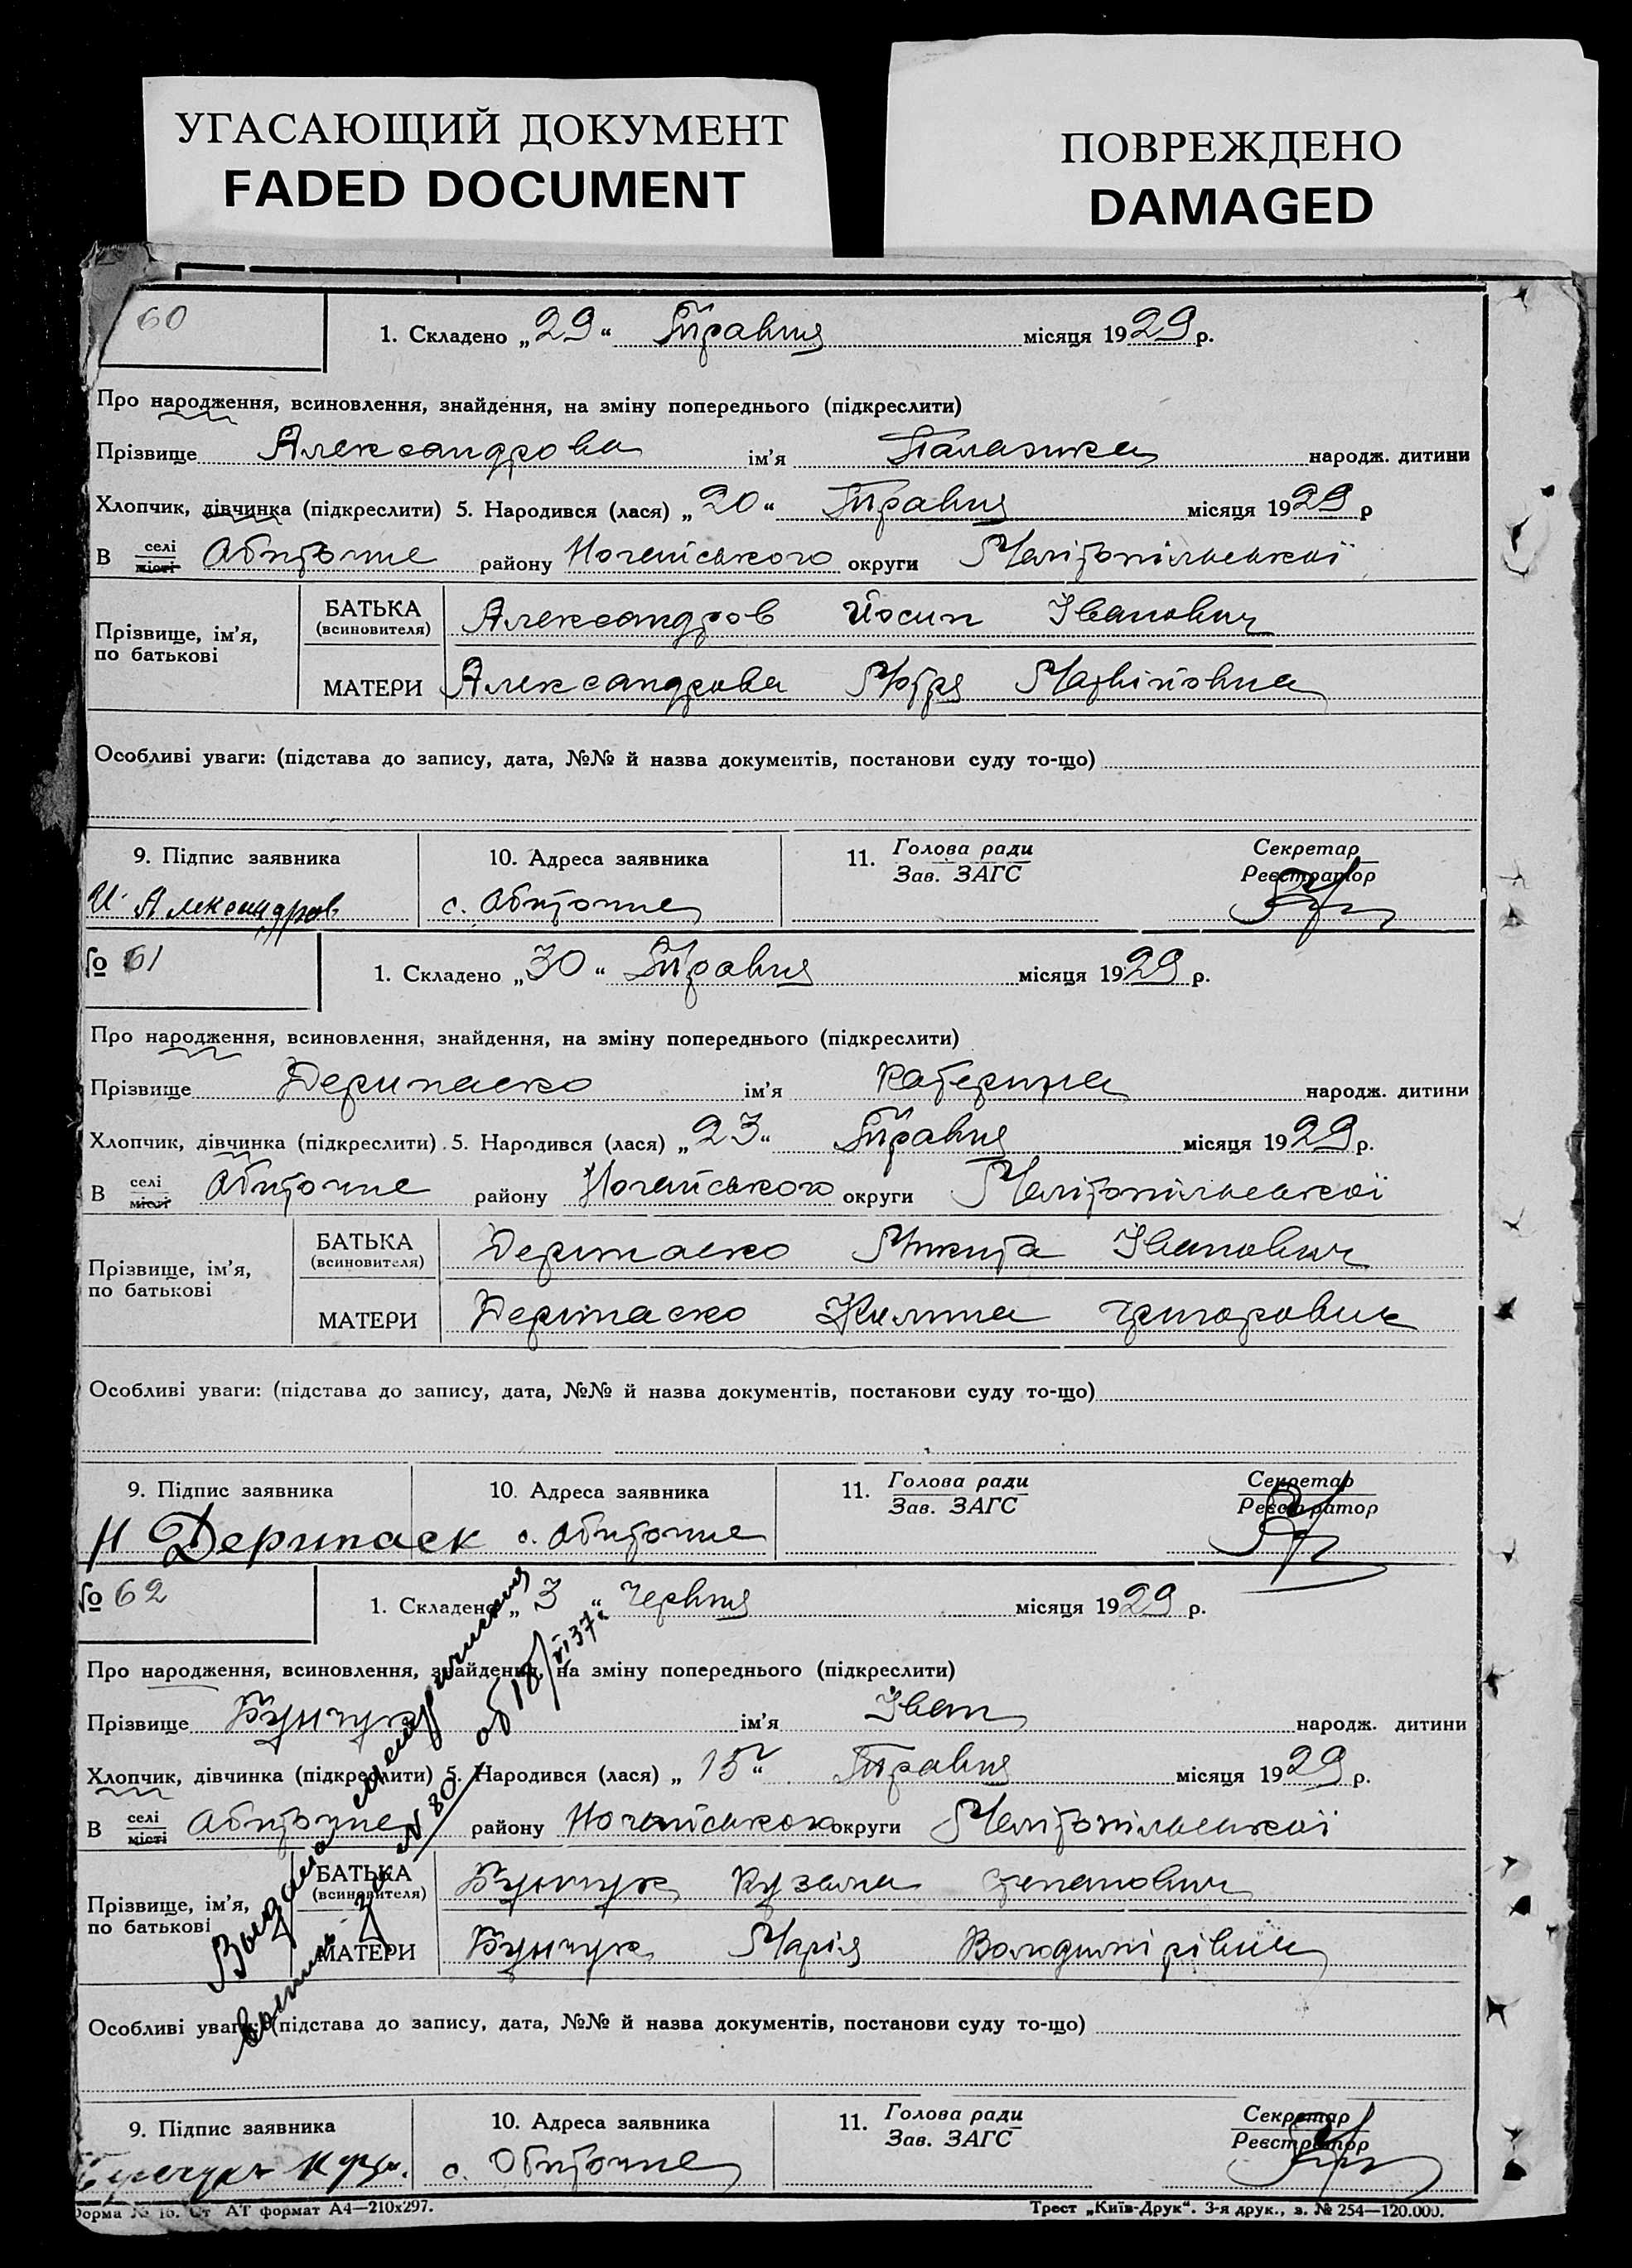 УГАСАЮЩИЙ ДОКУМЕНТ
FADED DOCUMENT
ПОВРЕЖДЕНО
DAMAGED
60
1. Складено „29“ Травня місяця 1929 р.
Про народження, всиновлення, знайдення, на зміну попереднього (підкреслити)
Прізвище Александрова ім’я Палажка народж. дитини
Хлопчик, дівчинка (підкреслити) 5. Народився (лася) „20“ Травня місяця 1929 р
В селі місті Обиточне району Ногайського округи Мелітопільської
Прізвище, ім’я, по батькові
БАТЬКА (всиновителя) Александров Йосип Іванович
МАТЕРИ Александрова Мотря Матвіївна
Особливі уваги: (підстава до запису, дата, №№ й назва документів, постанови суду то-що)
9. Підпис заявника 10. Адреса заявника 11. Голова ради Зав. ЗАГС Секретар Реєстратор
И Александров с. Обиточне
№ 61
1. Складено „30“ Травня місяця 1929 р.
Про народження, всиновлення, знайдення, на зміну попереднього (підкреслити)
Прізвище Дерипаско ім’я Катерина народж. дитини
Хлопчик, дівчинка (підкреслити) 5. Народився (лася) „23“ Травня місяця 1929 р.
В селі місті Обиточне району Ногайського округи Мелітопільської
Прізвище, ім’я, по батькові
БАТЬКА (всиновителя) Дерипаско Микита Іванович
МАТЕРИ Дерипаско Килина
Особливі уваги: (підстава до запису, дата, №№ й назва документів, постанови суду то-що)
9. Підпис заявника 10. Адреса заявника 11. Голова ради Зав. ЗАГС Секретар Реєстратор
Н Дерипаск с. Обиточне
№ 62
1. Складено „3“ Червня місяця 1929 р.
Про народження, всиновлення, знайдення, на зміну попереднього (підкреслити)
Прізвище Бунчук ім’я Іван народж. дитини
Хлопчик, дівчинка (підкреслити) 5. Народився (лася) „15“ Травня місяця 1929 р.
В селі місті Обиточне району Ногайського округи Мелітопільської
Прізвище, ім’я, по батькові
БАТЬКА (всиновителя) Бунчук Кузьма Степанович
МАТЕРИ Бунчук Марія
Особливі уваги: (підстава до запису, дата, №№ й назва документів, постанови суду то-що)
9. Підпис заявника 10. Адреса заявника 11. Голова ради Зав. ЗАГС Секретар Реєстратор
с. Обиточне
Форма № 16. Ст АТ формат А4—210x297.
Трест „Київ-Друк“. 3-я друк., з. № 254—120.000.